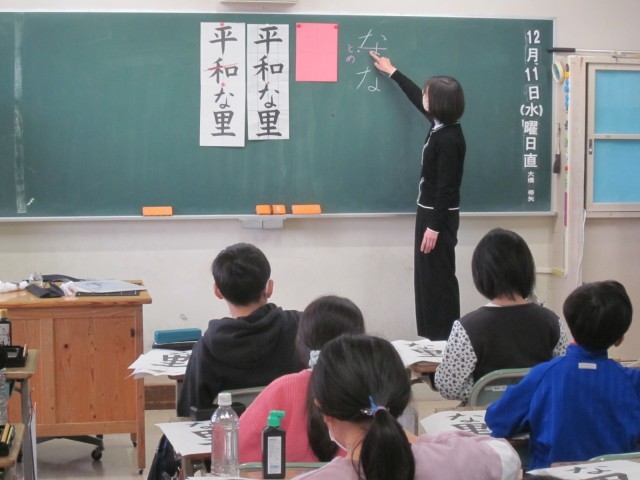 平和な里
平和な里
なな
との
12月11日(水)曜日直